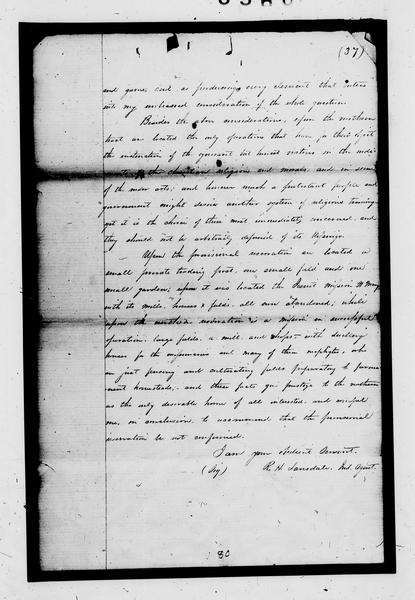 (37)
and game, and as producing every element that enters
into my unbiassed consideration of the whole question.
Besides the above considerations, upon the northern
tract are located the only operations that have for their object
the instruction of the ignorant but honest natives in the
the Christian religion and morals, and in some
of the minor arts; and however much a protestant people and
government might desire another system of religious training
yet it is the choice of those most immediately concerned, and
they should not be arbitrarily deprived of its
Upon the provisional reservation are located a
small private trading post, one small field and one
small garden; upon it was located the Jesuit mission St Mary
with its mills, houses & fields, all now abandoned; while
upon the northern reservation is a mission in successful
operation: large fields, a mill, and shops with dwelling
houses for the missionaries and many of their neophytes, who
are just fencing and cultivating fields preparatory to perma-
nent homesteads; and these facts give prestige to the northern
as the only desirable home of all interested, and compel
me, in conclusion, to recommend that the provisional
reservation be not confirmed.
I am your obedient Servant.
(Sg) R. H. Lansdale. Ind. Agent.
80